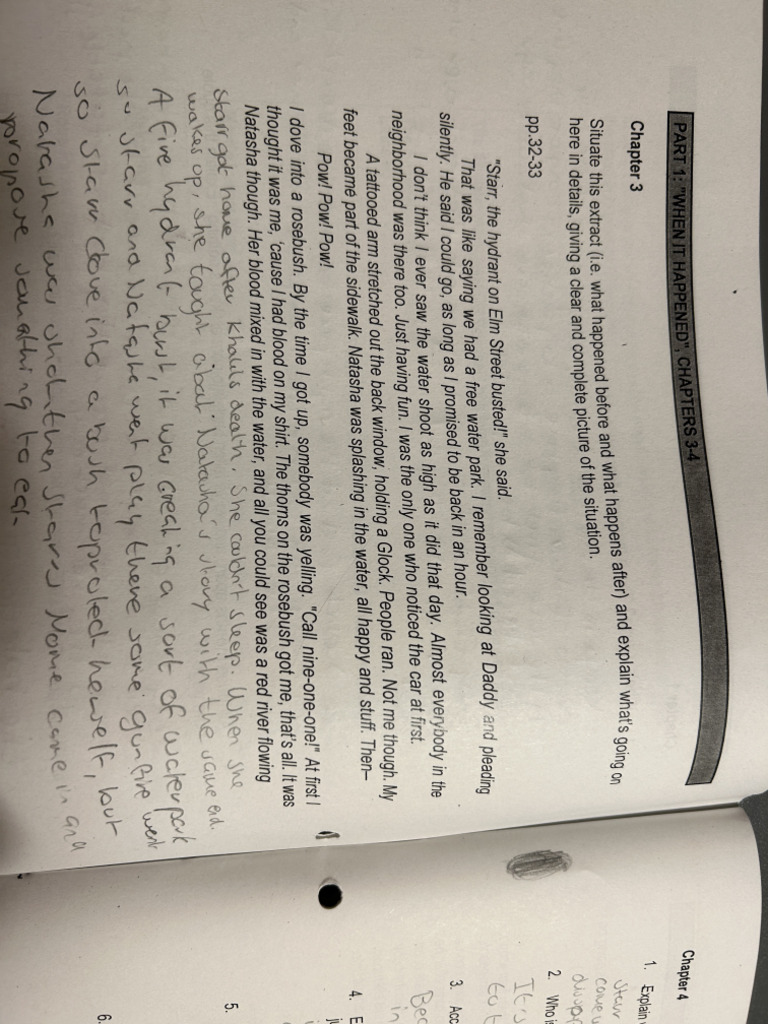 PART 1: "WHEN IT HAPPENED", CHAPTERS 3-4
Chapter 3
Situate this extract (i.e. what happened before and what happens after) and explain what's going on
here in details, giving a clear and complete picture of the situation.
pp.32-33
"Starr, the hydrant on Elm Street busted!" she said.
That was like saying we had a free water park. I remember looking at Daddy and pleading
silently. He said I could go, as long as I promised to be back in an hour.
I don't think I ever saw the water shoot as high as it did that day. Almost everybody in the
neighborhood was there too. Just having fun. I was the only one who noticed the car at first.
A tattooed arm stretched out the back window, holding a Glock. People ran. Not me though. My
feet became part of the sidewalk. Natasha was splashing in the water, all happy and stuff. Then–
Pow! Pow! Pow!
I dove into a rosebush. By the time I got up, somebody was yelling. "Call nine-one-one!" At first I
thought it was me, 'cause I had blood on my shirt. The thorns on the rosebush got me, that's all. It was
Natasha though. Her blood mixed in with the water, and all you could see was a red river flowing
Starr got home after Khalil's death. She couldn't sleep. When she
wakes up, she tought about Natasha's story with the same end.
A fire hydrant burst, it was creating a sort of waterpark
so starr and Natasha went play there some gunfire went
so Starr dove into a bush to protect herself, but
Natasha was shot then Starrs Mome came in and
propose something to eat.
Chapter 4
1. Explain
Starr
2. Who i
It's
3. Acc
Bec
in
4. E
5.
6.